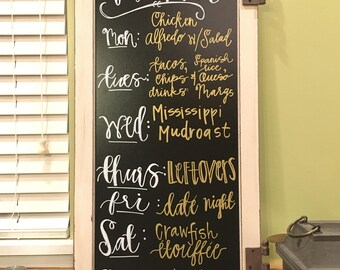 Chicken
Mon: Alfredo w/ Salad
tues: tacos, Spanish rice,
chips & Queso
drinks Margs
Wed: Mississippi
Mudroast
thurs: LEFTOVERS
fri: date night
Sat: Crawfish
Etouffée